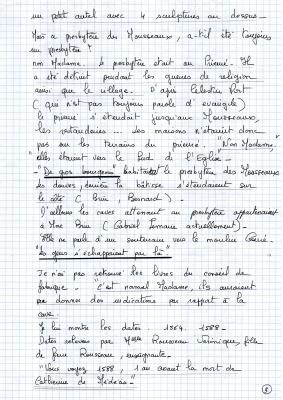 un petit autel avec 4 sculptures au dessus.
Mais ce presbytère des Mousseaux, a-t-il été toujours
un presbytère ?
non Madame. le presbytère était au Prieuré. Il
a été détruit pendant les guerres de religion
ainsi que le village. D'après Célestin Port
( qui n'est pas toujours parole d'évangile )
le prieuré s'étendait jusqu'aux Mousseaux,
les maisons n'étaient donc
pas sur les terrains du prieuré. "Non Madame,
elles étaient vers le Sud de l'Eglise -
- "De gros bourgeois" habitaient le presbytère des Mousseaux
les douves, derrière la bâtisse s'étendaient sur
le côté ( Brin, Besnard )
les caves attenant au presbytère appartenaient
à Mme Brin ( Gabriel actuellement ) -
Elle ne parle d'un souterrain vers le moulin
"les gens s'échappaient par là"
Je n'ai pas retrouvé les livres du conseil de
fabrique - "C'est normal Madame, ils auraient
pu donner des indications par rapport à la
cave.
Je lui montre les dates : 1564. 1588.
Dates relevées par Melle Rousseau Véronique, fille
de feue Rousseau, enseignante.
"Vous voyez 1588, 1 an avant la mort de
Catherine de Médicis"
8